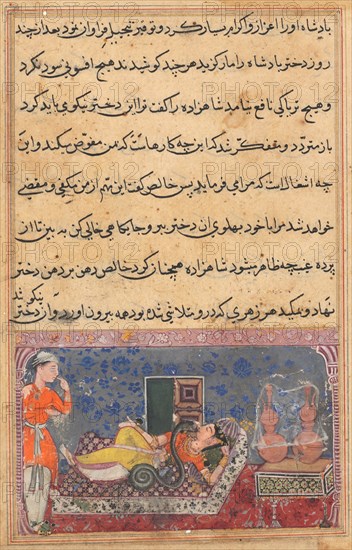 بادشاه او را اعزاز و اکرام بسیار کرد و توقیر و تبجیل فراوان نمود بعد از چند
روز دختر بادشاه را مار گزید هر چند کوشیدند هیچ افسونی سود نکرد
و هیچ تریاکی نافع نیامد شاهزاده را گفت تو این دختر نیکو می باید کرد
باز متردد و متفکر شد که این چه کارهاست که بمن مفوض میکند و این
چه اشغال است که مرا می فرماید پس خالص گفت این مهم از من مکفی و مقضی
خواهد شد مرا با خود بهلوی آن دختر ببر و جایگاهی خالی کن به بین تا از
پرده غیب چه ظاهر میشود شاهزاده همچنان کرد خالص دهن بر دهن دختر
نهاد و بمکید هر زهری که درو متلاشی شده بود همه بیرون آورد و آن دختر
نیکو شد
PHOTO12